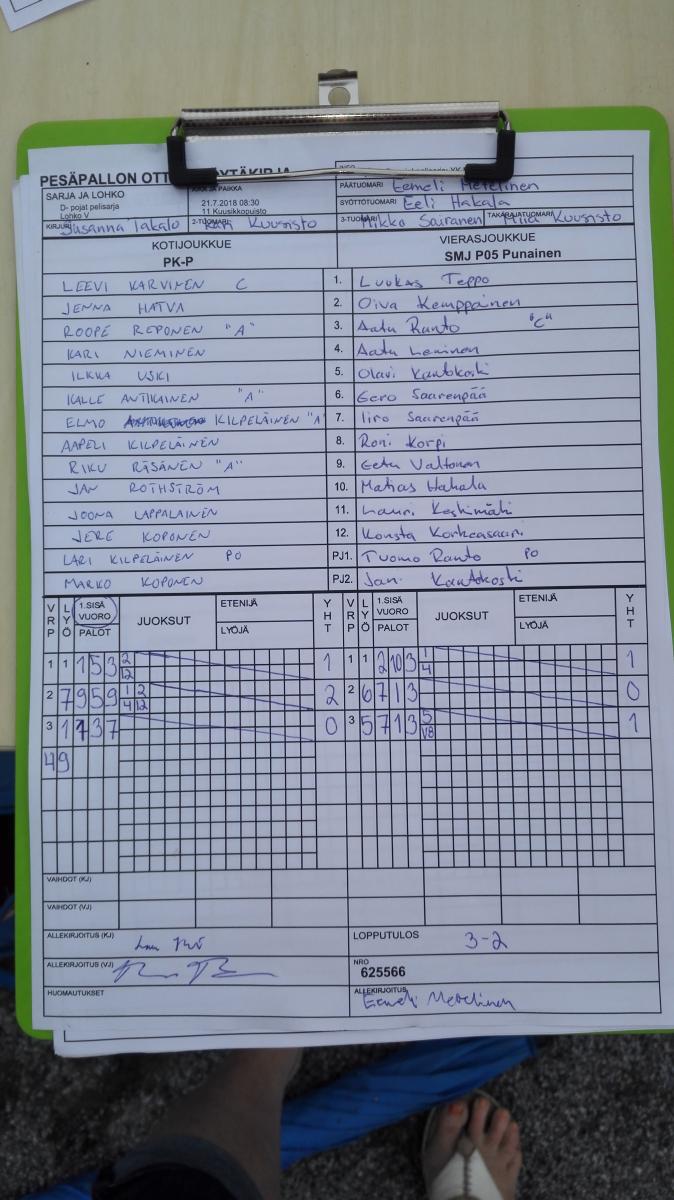 PESÄPALLON OTT
SARJA JA LOHKO
D- pojat pelisarja
Lohko V
21.7.2018 08:30
11 Kuusikkopuisto
PÄÄTUOMARI Eemeli Metelinen
SYÖTTÖTUOMARI Eeli Hakala
KIRJURI Susanna Takalo
2-TUOMARI Kari Kuusisto
3-TUOMARI Mikko Sairanen
TAKARAJATUOMARI Miia Kuusisto
KOTIJOUKKUE
PK-P
VIERASJOUKKUE
SMJ P05 Punainen
LEEVI KARVINEN C 1. Luukas Teppo
JENNA HATVA 2. Oiva Kemppainen
ROOPE REPONEN "A" 3. Aatu Ranto "C"
KARI NIEMINEN 4. Aatu Leminen
ILKKA USKI 5. Olavi Kantokoski
KALLE ANTIKAINEN "A" 6. Eero Saarenpää
ELMO KILPELÄINEN "A" 7. Iiro Saarenpää
AAPELI KILPELÄINEN 8. Roni Korpi
RIKU RÄSÄNEN "A" 9. Eetu Valtonen
JAN ROTHSTRÖM 10. Matias Hakala
JOONA LAPPALAINEN 11. Lauri Keskimäki
JERE KOPONEN 12. Konsta Korkeasaari
LARI KILPELÄINEN PO PJ1. Tuomo Ranto PO
MARKO KOPONEN PJ2. Jani Kantokoski
VRP LYÖ 1.SISÄ VUORO PALOT JUOKSUT ETENIJÄ LYÖJÄ YHT VRP LYÖ 1.SISÄ VUORO PALOT JUOKSUT ETENIJÄ LYÖJÄ YHT
1 1 1 5 3 2/12 1 1 1 2 10 3 1/4 1
2 7 9 5 9 1/4 2/12 2 2 6 7 1 3 0
3 1 1 3 7 0 3 5 7 1 3 5/V8 1
4 9
VAIHDOT (KJ)
VAIHDOT (VJ)
ALLEKIRJOITUS (KJ)
LOPPUTULOS 3-2
ALLEKIRJOITUS (VJ)
NRO
625566
HUOMAUTUKSET
ALLEKIRJOITUS
Eemeli Metelinen